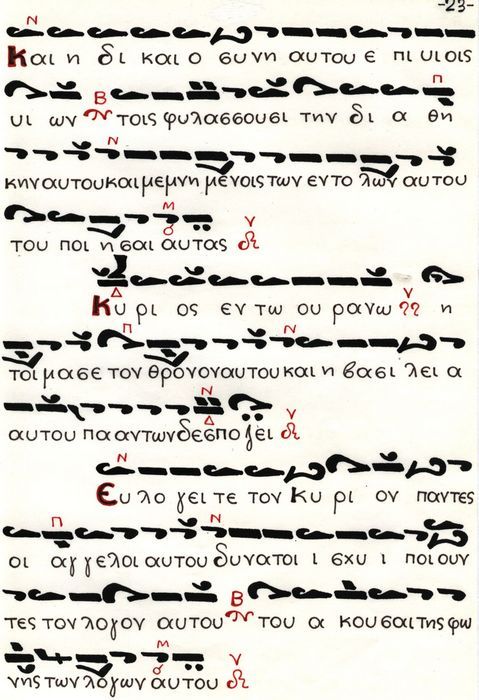 -23-
Και η δι και ο συνη αυτου ε πι υιοις
υι ων τοις φυλασσουσι την δι α θη
κην αυτου και μεμνημενοις των εντολων αυτου
του ποι η σαι αυτας
Κυ ρι ος εν τω ου ρανω η
τοι μασε τον θρονον αυτου και η βασι λει α
αυτου πα αντων δεσποζει
Ευ λο γει τε τον Κυ ρι ον παντες
οι αγγελοι αυτου δυνατοι ι σχυ ι ποι ουν
τες τον λογον αυτου του α κουσαι της φω
νης των λογων αυτου